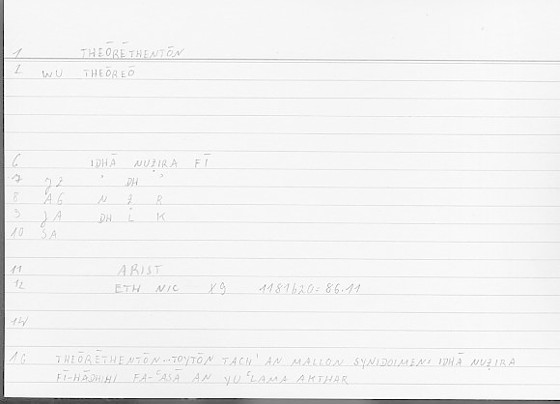 1 THEŌRĒTHENTŌN
2 WU THEŌREŌ
6 IDHĀ NUẒIRA FĪ
7 JZ ' DH ' '
8 AG N Ẓ R
9 JA DH L K
10 ŠA
11 ARIST
12 ETH NIC X9 1181b20 = 86.11
14
16 THEŌRĒTHENTŌN...TOYTŌN TACH' AN MALLON SYNIDOIMEN: IDHĀ NUẒIRA
FĪ-HĀDHIHI FA-ʿASĀ AN YUʿLAMA AKTHAR